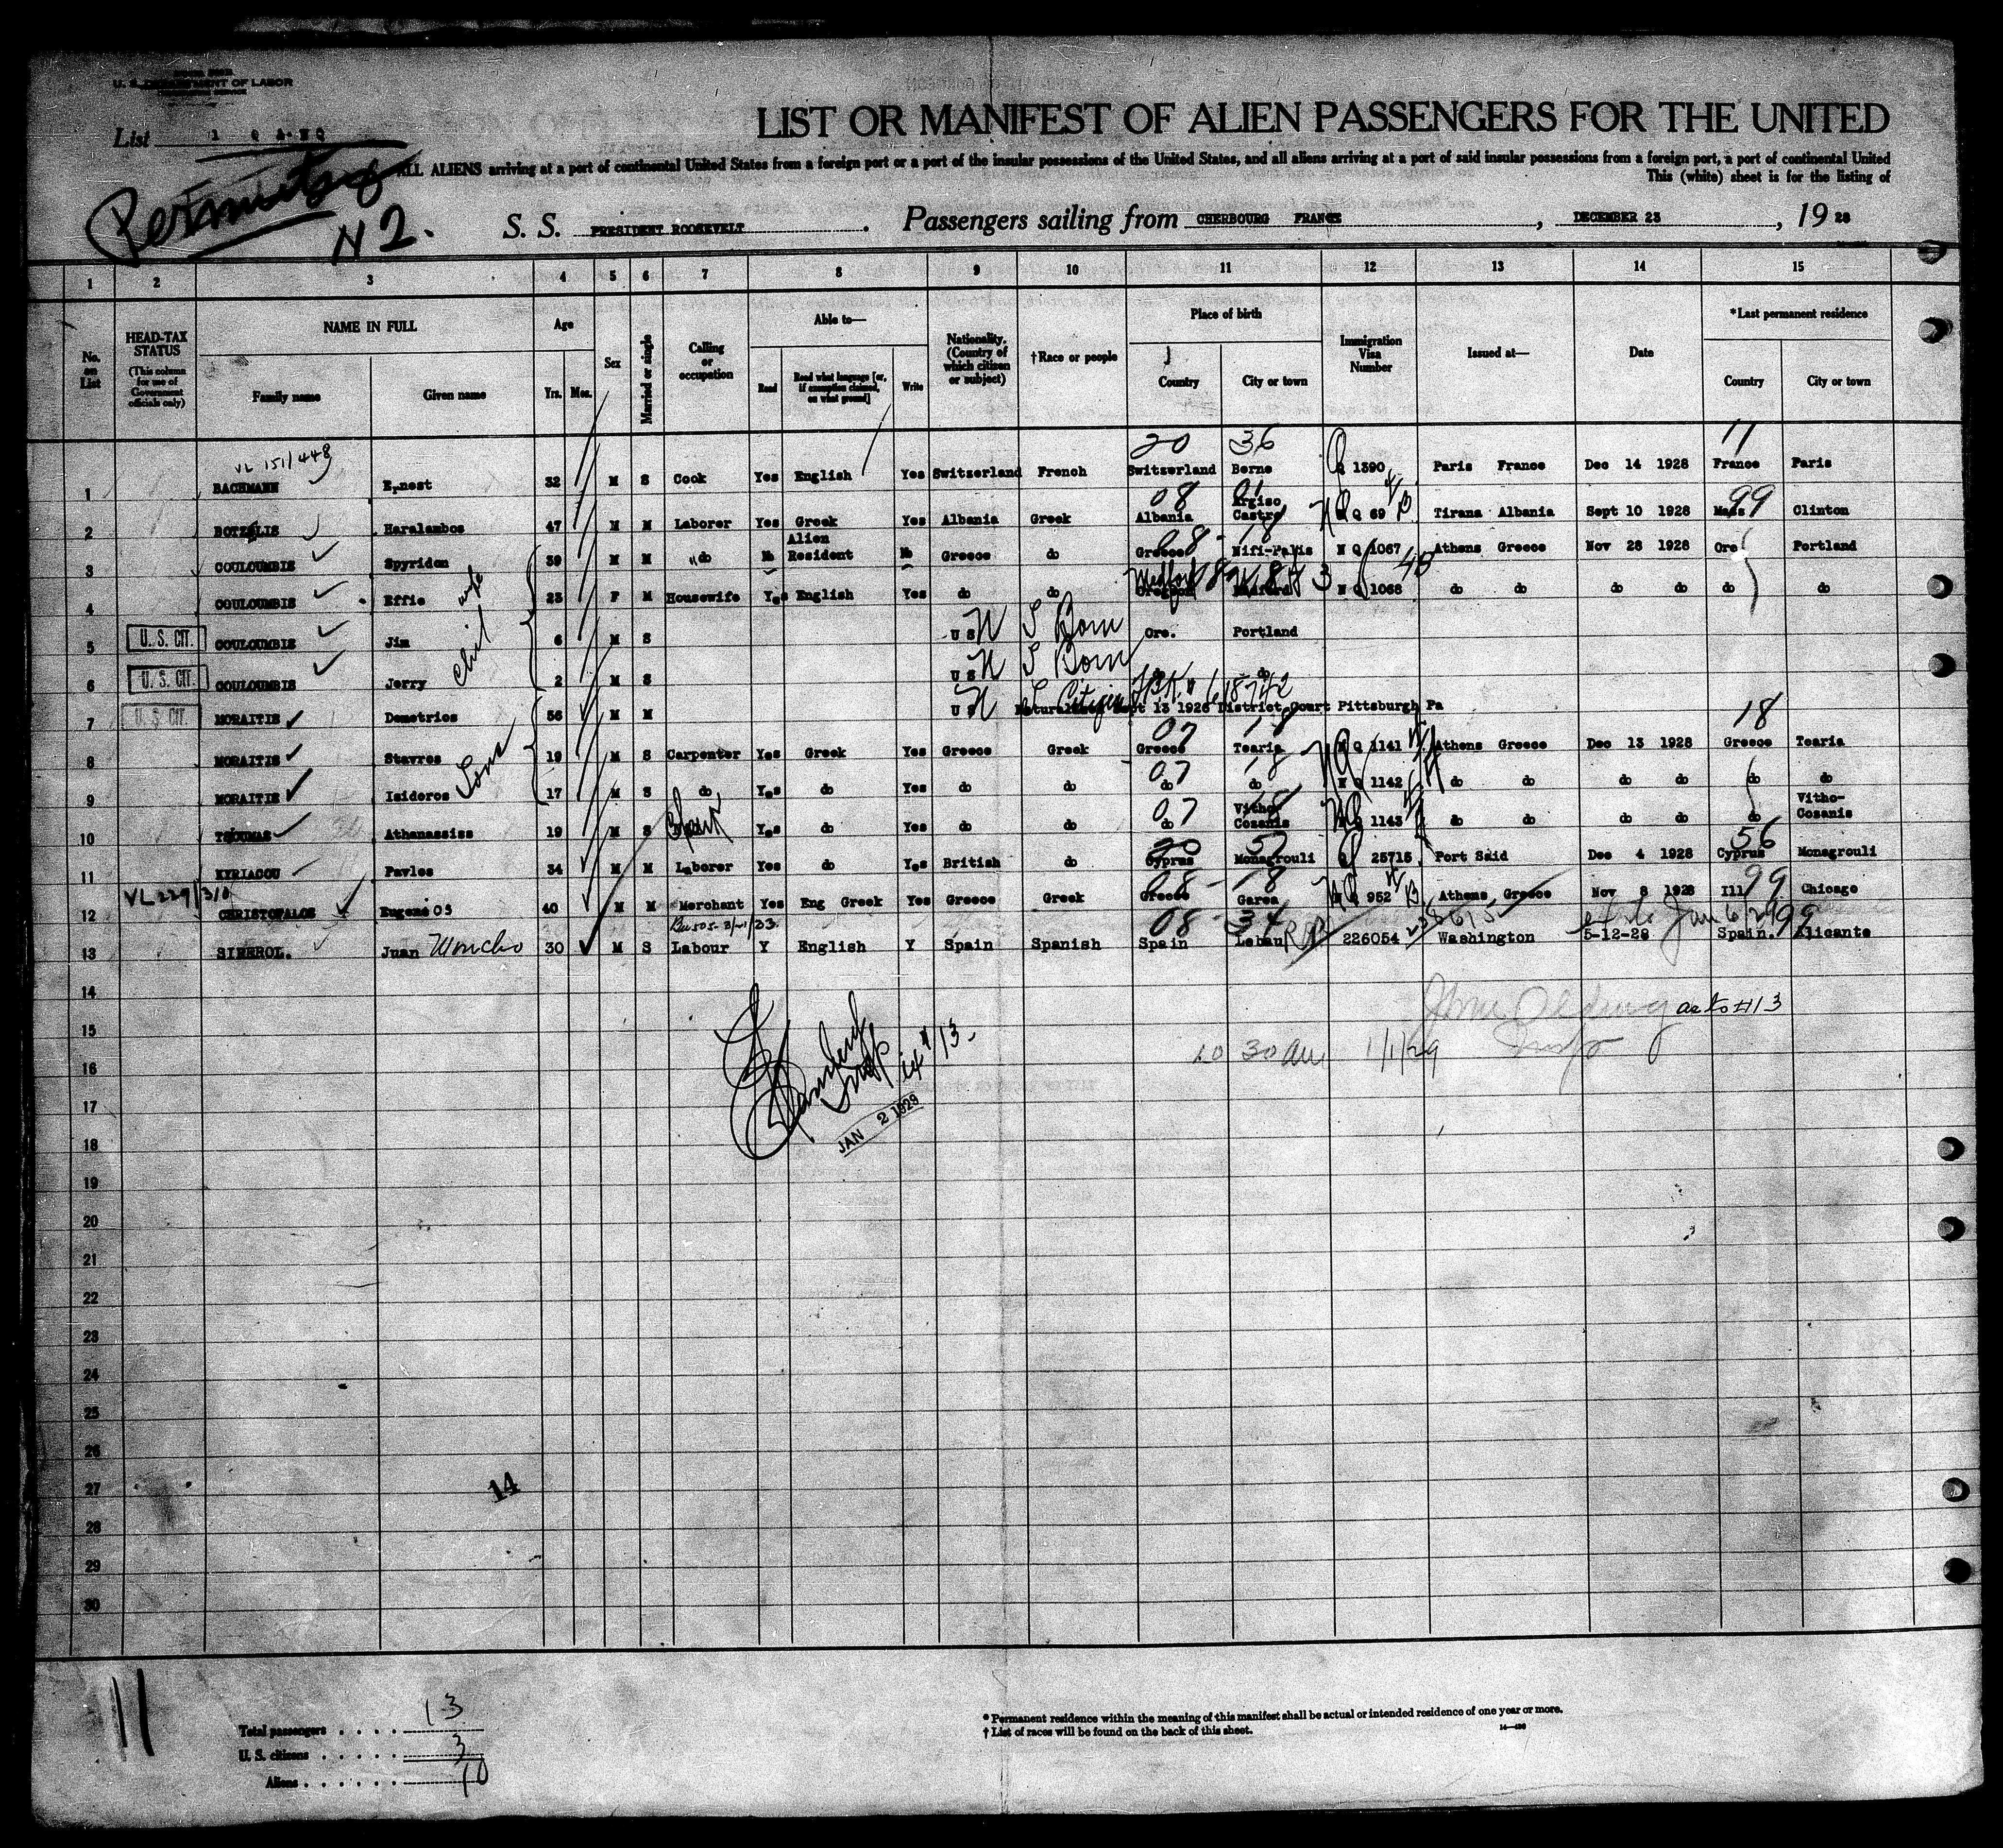 U. S. DEPARTMENT OF LABOR
List 1 Q & NQ
LIST OR MANIFEST OF ALIEN PASSENGERS FOR THE UNITED
ALL ALIENS arriving at a port of continental United States from a foreign port or a port of the insular possessions of the United States, and all aliens arriving at a port of said insular possessions from a foreign port, a port of continental United
This (white) sheet is for the listing of
N2.
S. S. PRESIDENT ROOSEVELT. Passengers sailing from CHERBOURG FRANCE, DECEMBER 23, 19 28
1 2 3 4 5 6 7 8 9 10 11 12 13 14 15
No. on List
HEAD-TAX STATUS (This column for use of Government officials only)
NAME IN FULL Family name Given name
Age Yrs. Mos.
Sex
Married or single
Calling or occupation
Able to— Read Read what language [or, if exemption claimed, on what ground] Write
Nationality. (Country of which citizen or subject)
†Race or people
Place of birth Country City or town
Immigration Visa Number
Issued at—
Date
*Last permanent residence Country City or town
VL 151/448 20 36 11
1 BACHMANN Ernest 32 M S Cook Yes English Yes Switzerland French Switzerland Berne Q 1390 Paris France Dec 14 1928 France Paris
08 99
2 BOTZELIS Haralambos 47 M M Laborer Yes Greek Yes Albania Greek Albania Argiso Castro NQ Q 69 Tirana Albania Sept 10 1928 Mass Clinton
3 COULOUMBIS Spyridon 39 M M do No Alien Resident No Greece do Greece Nifi-Palis N Q 1067 Athens Greece Nov 28 1928 Ore Portland
4 COULOUMBIS Effie wife 23 F M Housewife Yes English Yes do do Oregon Medford N Q 1068 do do do do do do do
5 U. S. CIT. COULOUMBIS Jim 6 M S U S U S Born Ore. Portland
6 U. S. CIT. COULOUMBIS Jerry 2 M S U S U S Born do
7 U. S. CIT. MORAITIS Demetrios 56 M M U S Naturalized Sept 13 1926 District Court Pittsburgh Pa
07 18 18
8 MORAITIS Stavros Sons 19 M S Carpenter Yes Greek Yes Greece Greek Greece Tearia N Q 1141 Athens Greece Dec 13 1928 Greece Tearia
07 18
9 MORAITIS Isideros 17 M S do Yes do Yes do do do do N Q 1142 do do do do do do do
07
10 TSOUMAS Athanassiss 19 M S Yes do Yes do do do Vitho Cozanis 1143 do do do do do do Vitho-Cozanis
56
11 KYRIACOU Pavlos 34 M M Laborer Yes do Yes British do Cyprus Monagrouli 25715 Port Said Dec 4 1928 Cyprus Monagrouli
VL 229/318 08 - 18 99
12 CHRISTOFALOS Eugene 40 M M Merchant Yes Eng Greek Yes Greece Greek Greece Garea NQ 952 Athens Greece Nov 8 1928 Ill Chicago
08 - 34 Jan 6/29 99
13 SIBEROL. Juan Moncho 30 M S Labour Y English Y Spain Spanish Spain 226054 Washington 5-12-28 Spain. Alicante
14
as to #13
15
10 30 am 1/1/29
16
17
JAN 2 1929
18
19
20
21
22
23
24
25
26
27
14
28
29
30
Total passengers . . . . 13
U. S. citizens . . . . . 3
Aliens . . . . . . 10
* Permanent residence within the meaning of this manifest shall be actual or intended residence of one year or more.
† List of races will be found on the back of this sheet.